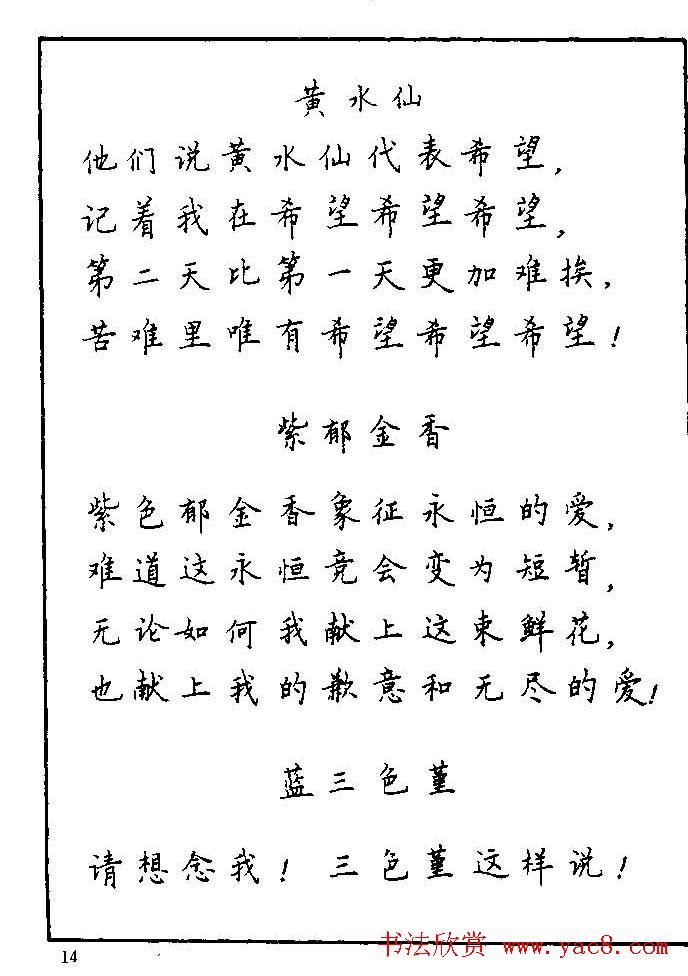 黄水仙
他们说黄水仙代表希望,
记着我在希望希望希望,
第二天比第一天更加难挨,
苦难里唯有希望希望希望!
紫郁金香
紫色郁金香象征永恒的爱,
难道这永恒竟会变为短暂,
无论如何我献上这束鲜花,
也献上我的歉意和无尽的爱!
蓝三色堇
请想念我!三色堇这样说!
14
书法欣赏 www.yac8.com